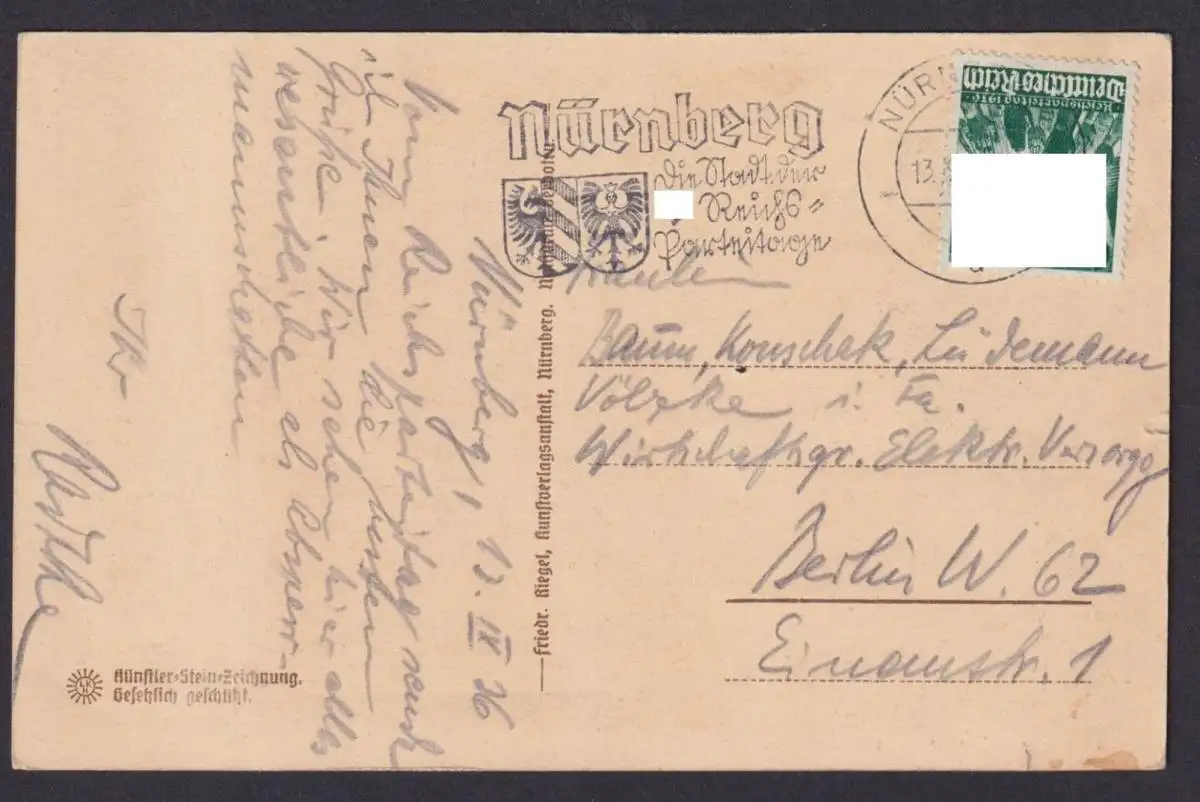 Nürnberg, 13. IX 36
Vom Reichsparteitag sende
ich Ihnen die besten
Grüße. Wir sehen hier alles
wesentliche als Absperr-
mannschaften
Ihr
Künstler-Stein-Zeichnung.
Gesetzlich geschützt.
Friedr. Riegel, Kunstverlagsanstalt, Nürnberg.
Nürnberg
Die Stadt der
Reichs=
Parteitage
NÜRN
13.
Deutsches Reich
Reichsparteitag 1936
Baum, Konschak, Lüdemann
Völzke i. Fa.
Wirtschaftsgr. Elektr. Versorgg
Berlin W. 62
Einemstr. 1